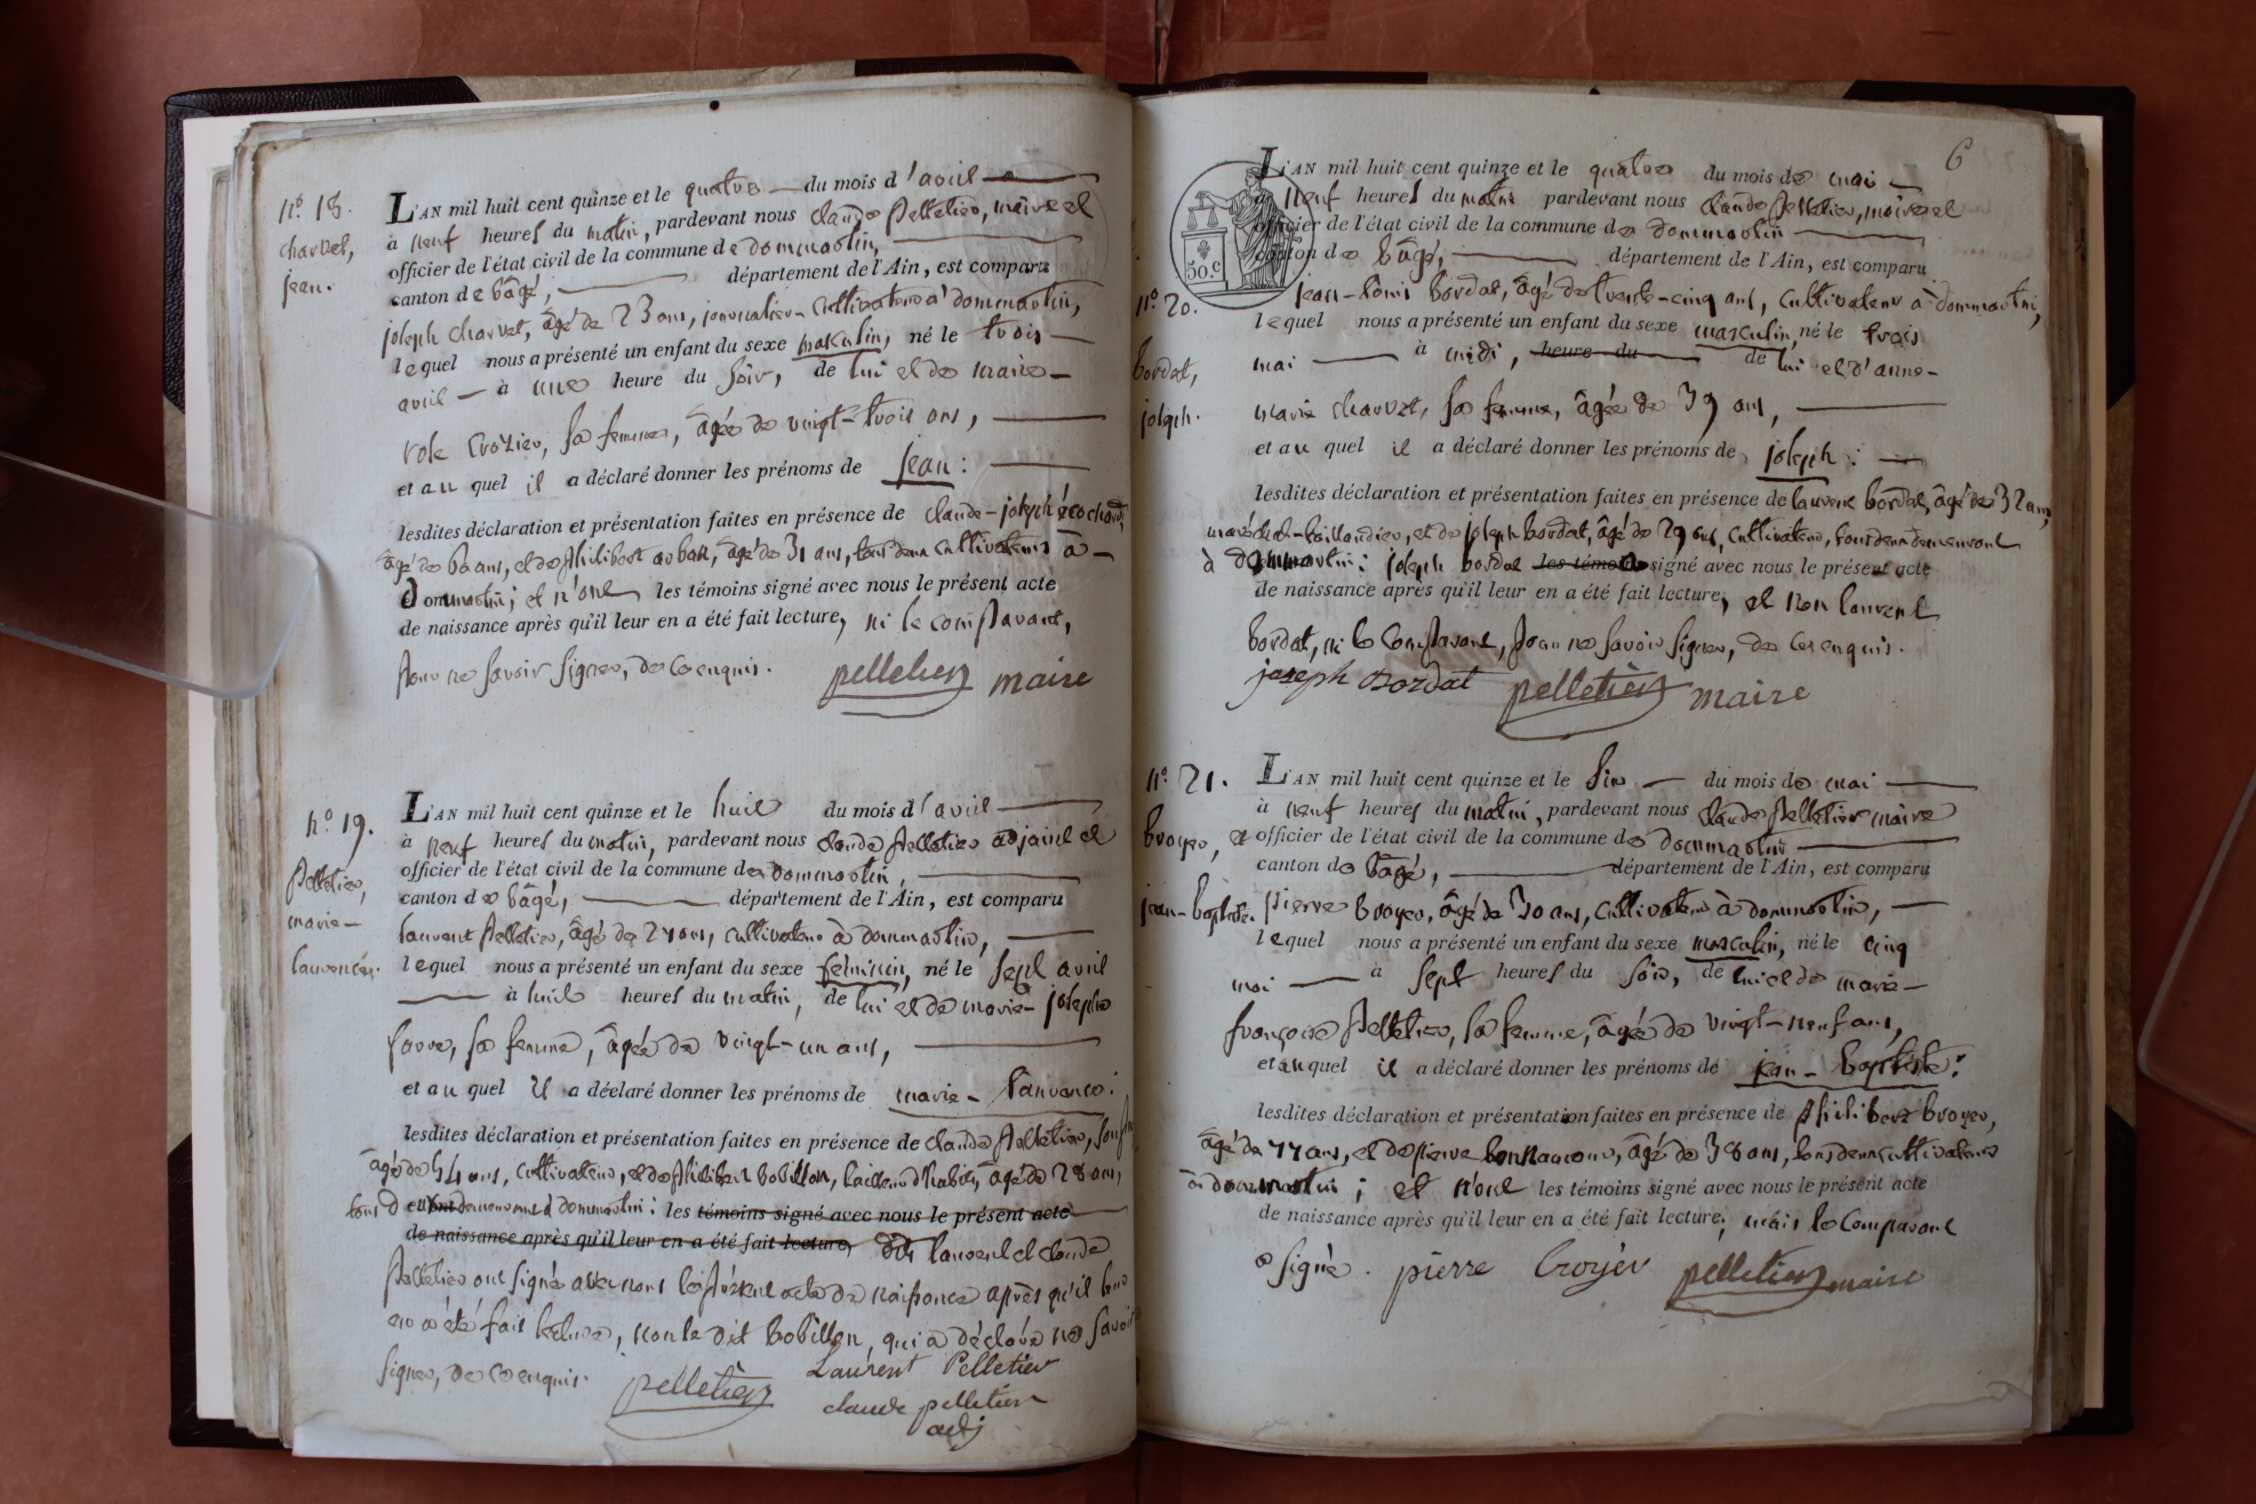 n.° 18.
charvet,
jean.
L'AN mil huit cent quinze et le quatre du mois d'avril
à neuf heures du matin, pardevant nous claude pelletier, maire et
officier de l'état civil de la commune de dommartin,
canton de bâgé, département de l'Ain, est comparu
joseph charvet, âgé de 23 ans, journalier-cultivateur à dommartin,
lequel nous a présenté un enfant du sexe masculin, né le trois
avril à une heure du soir, de lui et de marie-
rose crozier, sa femme, âgée de vingt-trois ans,
et au quel il a déclaré donner les prénoms de jean :
lesdites déclaration et présentation faites en présence de claude-joseph
âgé de ans, et de philibert, âgé de 31 ans, tous deux cultivateurs à
dommartin ; et n'ont les témoins signé avec nous le présent acte
de naissance après qu'il leur en a été fait lecture, ni le comparant,
pour ne savoir signer, de ce enquis.
pelletier maire
n.° 19.
pelletier,
marie-
laurence.
L'AN mil huit cent quinze et le huit du mois d'avril
à neuf heures du matin, pardevant nous claude pelletier adjoint et
officier de l'état civil de la commune de dommartin,
canton de bâgé, département de l'Ain, est comparu
laurent pelletier, âgé de 27 ans, cultivateur à dommartin,
lequel nous a présenté un enfant du sexe féminin, né le sept avril
à huit heures du matin, de lui et de marie-josephe
favre, sa femme, âgée de vingt-un ans,
et au quel il a déclaré donner les prénoms de marie-laurence :
lesdites déclaration et présentation faites en présence de claude pelletier,
âgé de 54 ans, cultivateur, et de philibert bobillon, tailleur d'habits, âgé de 28 ans,
tous deux demeurant à dommartin : les témoins signé avec nous le présent acte
de naissance après qu'il leur en a été fait lecture, dits laurent et claude
pelletier ont signé avec nous le présent acte de naissance après qu'il leur
en a été fait lecture, non le dit bobillon, qui a déclaré ne savoir
signer, de ce enquis.
pelletier Laurent Pelletier
claude pelletier
adj
6
50.c
n.° 20.
bordat,
joseph.
L'AN mil huit cent quinze et le quatre du mois de mai
à neuf heures du matin pardevant nous claude pelletier, maire et
officier de l'état civil de la commune de dommartin
canton de bâgé, département de l'Ain, est comparu
jean-louis bordat, âgé de trente-cinq ans, cultivateur à dommartin,
lequel nous a présenté un enfant du sexe masculin, né le trois
mai à midi, heure du de lui et d'anne-
marie charvet, sa femme, âgée de 39 ans,
et au quel il a déclaré donner les prénoms de joseph :
lesdites déclaration et présentation faites en présence de laurent bordat, âgé de 32 ans,
maréchal-taillandier, et de joseph bordat, âgé de 29 ans, cultivateur, tous deux demeurant
à dommartin : joseph bordat les témoins signé avec nous le présent acte
de naissance après qu'il leur en a été fait lecture, et non laurent
bordat, ni le comparant, pour ne savoir signer, de ce enquis.
joseph Bordat pelletier maire
n.° 21.
broyer,
jean-baptiste.
L'AN mil huit cent quinze et le six du mois de mai
à neuf heures du matin, pardevant nous claude pelletier maire
et officier de l'état civil de la commune de dommartin
canton de bâgé, département de l'Ain, est comparu
pierre broyer, âgé de 30 ans, cultivateur à dommartin,
lequel nous a présenté un enfant du sexe masculin, né le cinq
mai à sept heures du soir, de lui et de marie-
françoise pelletier, sa femme, âgée de vingt-neuf ans,
et au quel il a déclaré donner les prénoms de jean-baptiste :
lesdites déclaration et présentation faites en présence de philibert broyer,
âgé de 77 ans, et de pierre, âgé de 38 ans, tous deux cultivateurs
à dommartin ; et n'ont les témoins signé avec nous le présent acte
de naissance après qu'il leur en a été fait lecture, mais le comparant
a signé. pierre broyer pelletier maire